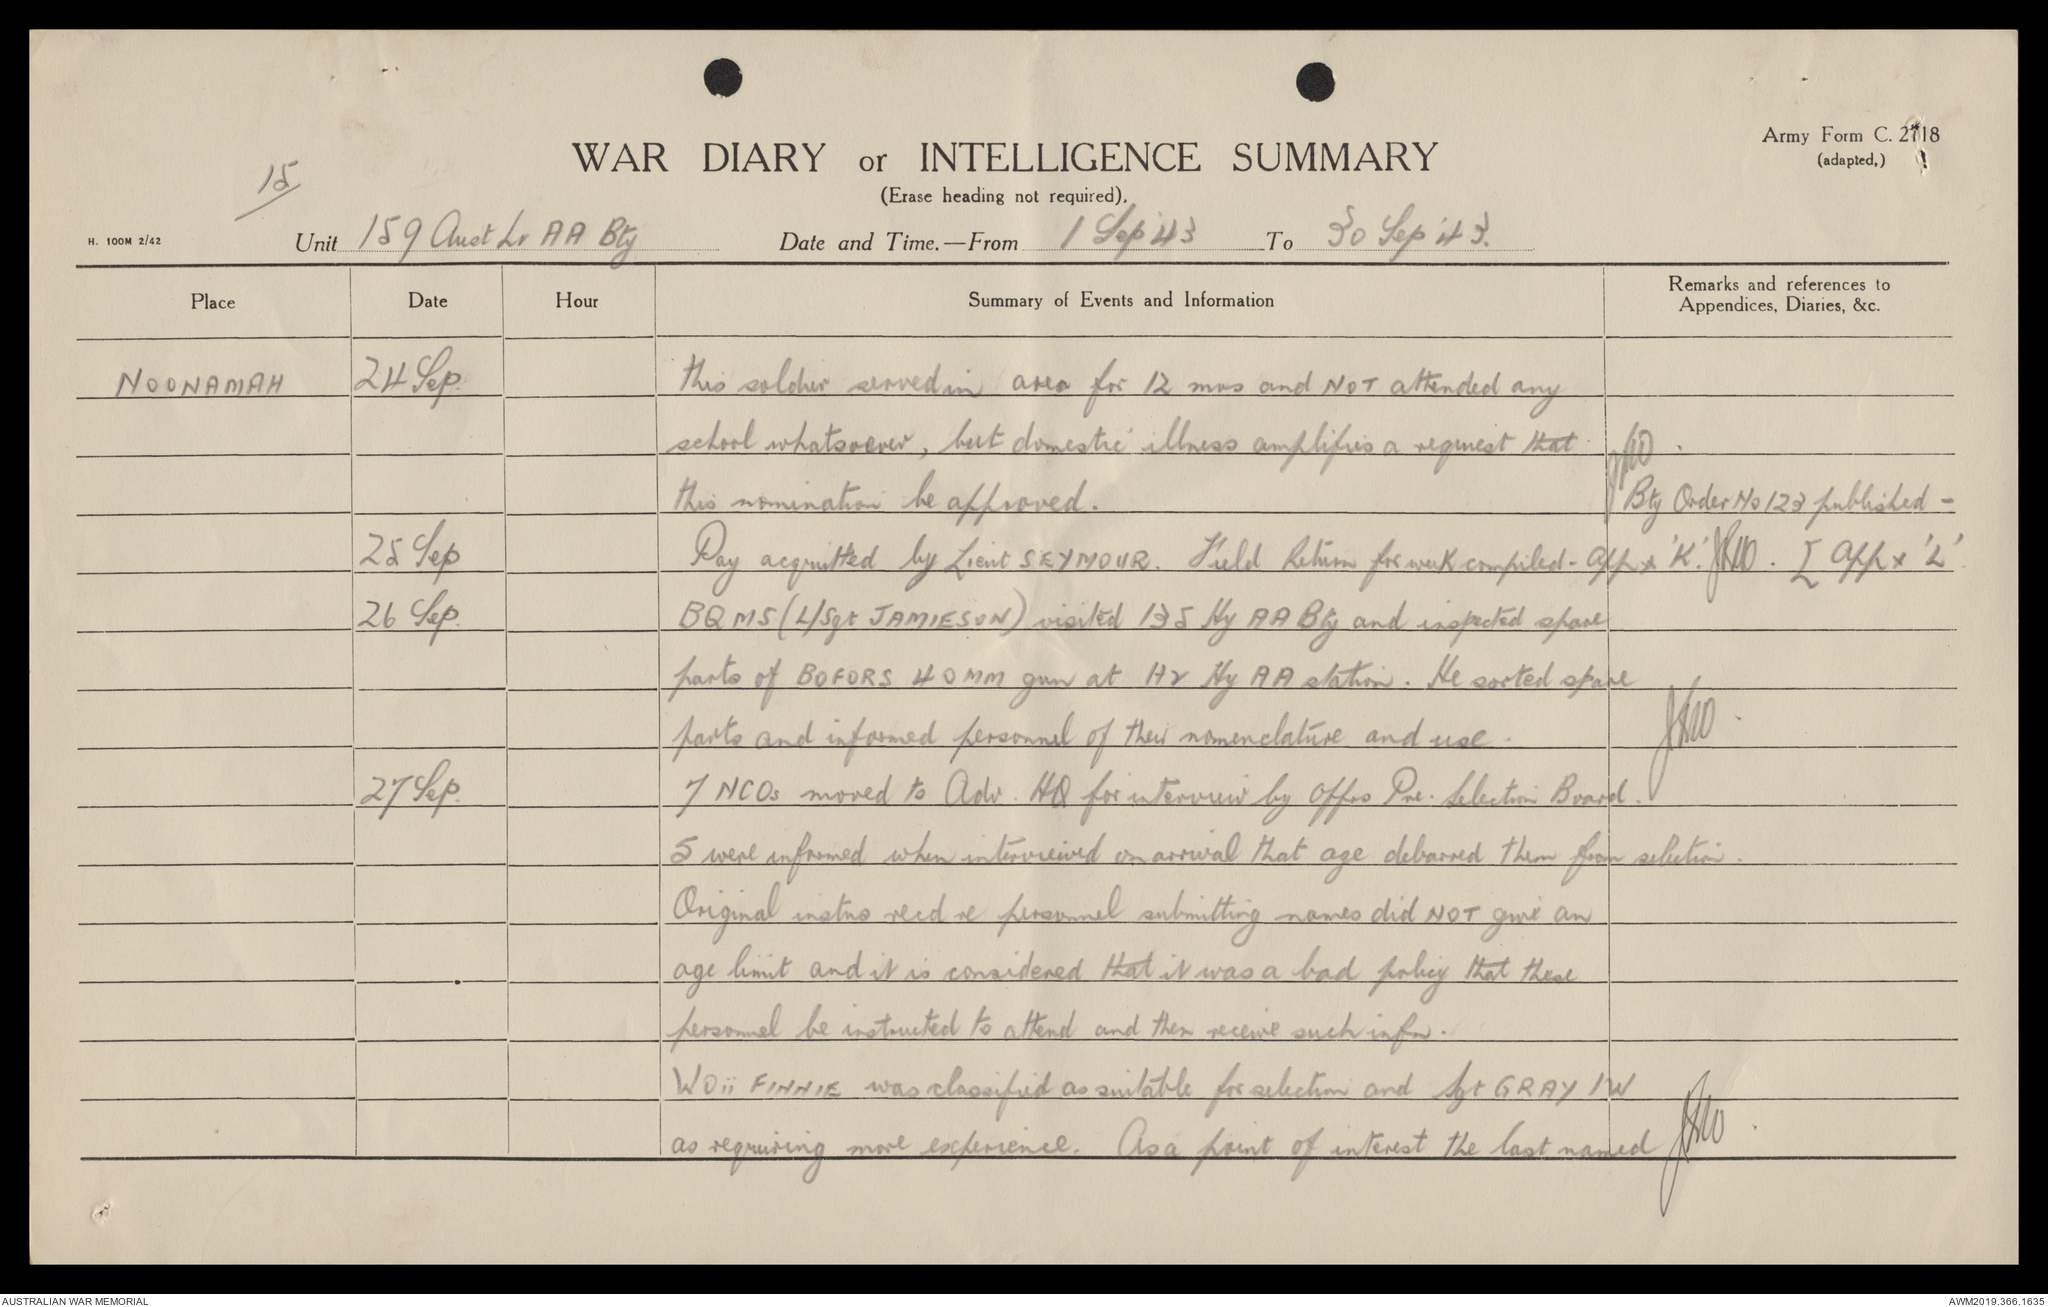 Army Form C. 2118
(adapted,)
15
WAR DIARY or INTELLIGENCE SUMMARY
(Erase heading not required).
H. 100M 2/42
Unit 159 Aust Lt AA Bty Date and Time.—From 1 Sep '43 To 30 Sep '43.
Place Date Hour Summary of Events and Information Remarks and references to Appendices, Diaries, &c.
NOONAMAH 24 Sep. this soldier served in area for 12 mos and NOT attended any
school whatsoever, but domestic illness amplifies a request that
this nomination be approved. Bty Order No 123 published -
25 Sep Pay acquitted by Lieut SEYMOUR. Field Return for week compiled - Appx 'K'. [ Appx 'L'
26 Sep. BQMS (L/Sgt JAMIESON) visited 135 Hy AA Bty and inspected spare
parts of BOFORS 40MM gun at Hy AA station. He sorted spare
parts and informed personnel of their nomenclature and use.
27 Sep. 7 NCOs moved to Adv. HQ for interview by Offrs Pre. Selection Board.
5 were informed when interviewed on arrival that age debarred them from selection.
Original instns recd re personnel submitting names did NOT give an
age limit and it is considered that it was a bad policy that these
personnel be instructed to attend and then receive such infn.
WOii FINNIE was classified as suitable for selection and Sgt GRAY IW
as requiring more experience. As a point of interest the last named
AUSTRALIAN WAR MEMORIAL
AWM2019.366.1635